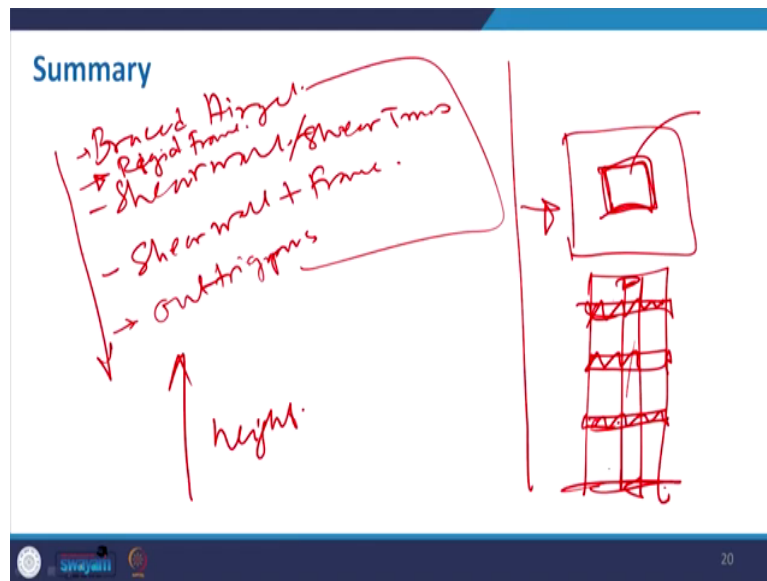 Summary
→ Braced
→ Rigid Frame.
- Shear wall/Shear Truss
- Shear wall + Frame.
→ outriggers
height.
swayam
20